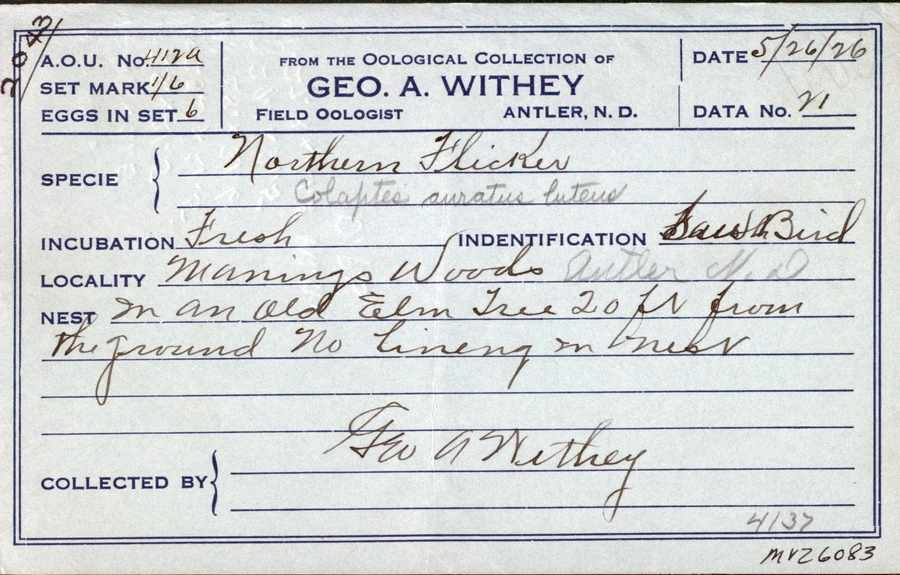 2043
A.O.U. No. 412a
SET MARK 1/6
EGGS IN SET 6
FROM THE OOLOGICAL COLLECTION OF
GEO. A. WITHEY
FIELD OOLOGIST ANTLER, N. D.
DATE 5/26/26
DATA No. 21
SPECIE Northern Flicker
Colaptes auratus luteus
INCUBATION Fresh INDENTIFICATION Saw Bird
LOCALITY Manings Woods Antler N. D
NEST In an Old Elm Tree 20 ft from
the ground No Lineng in nest
Geo A Withey
COLLECTED BY
4137
MVZ6083